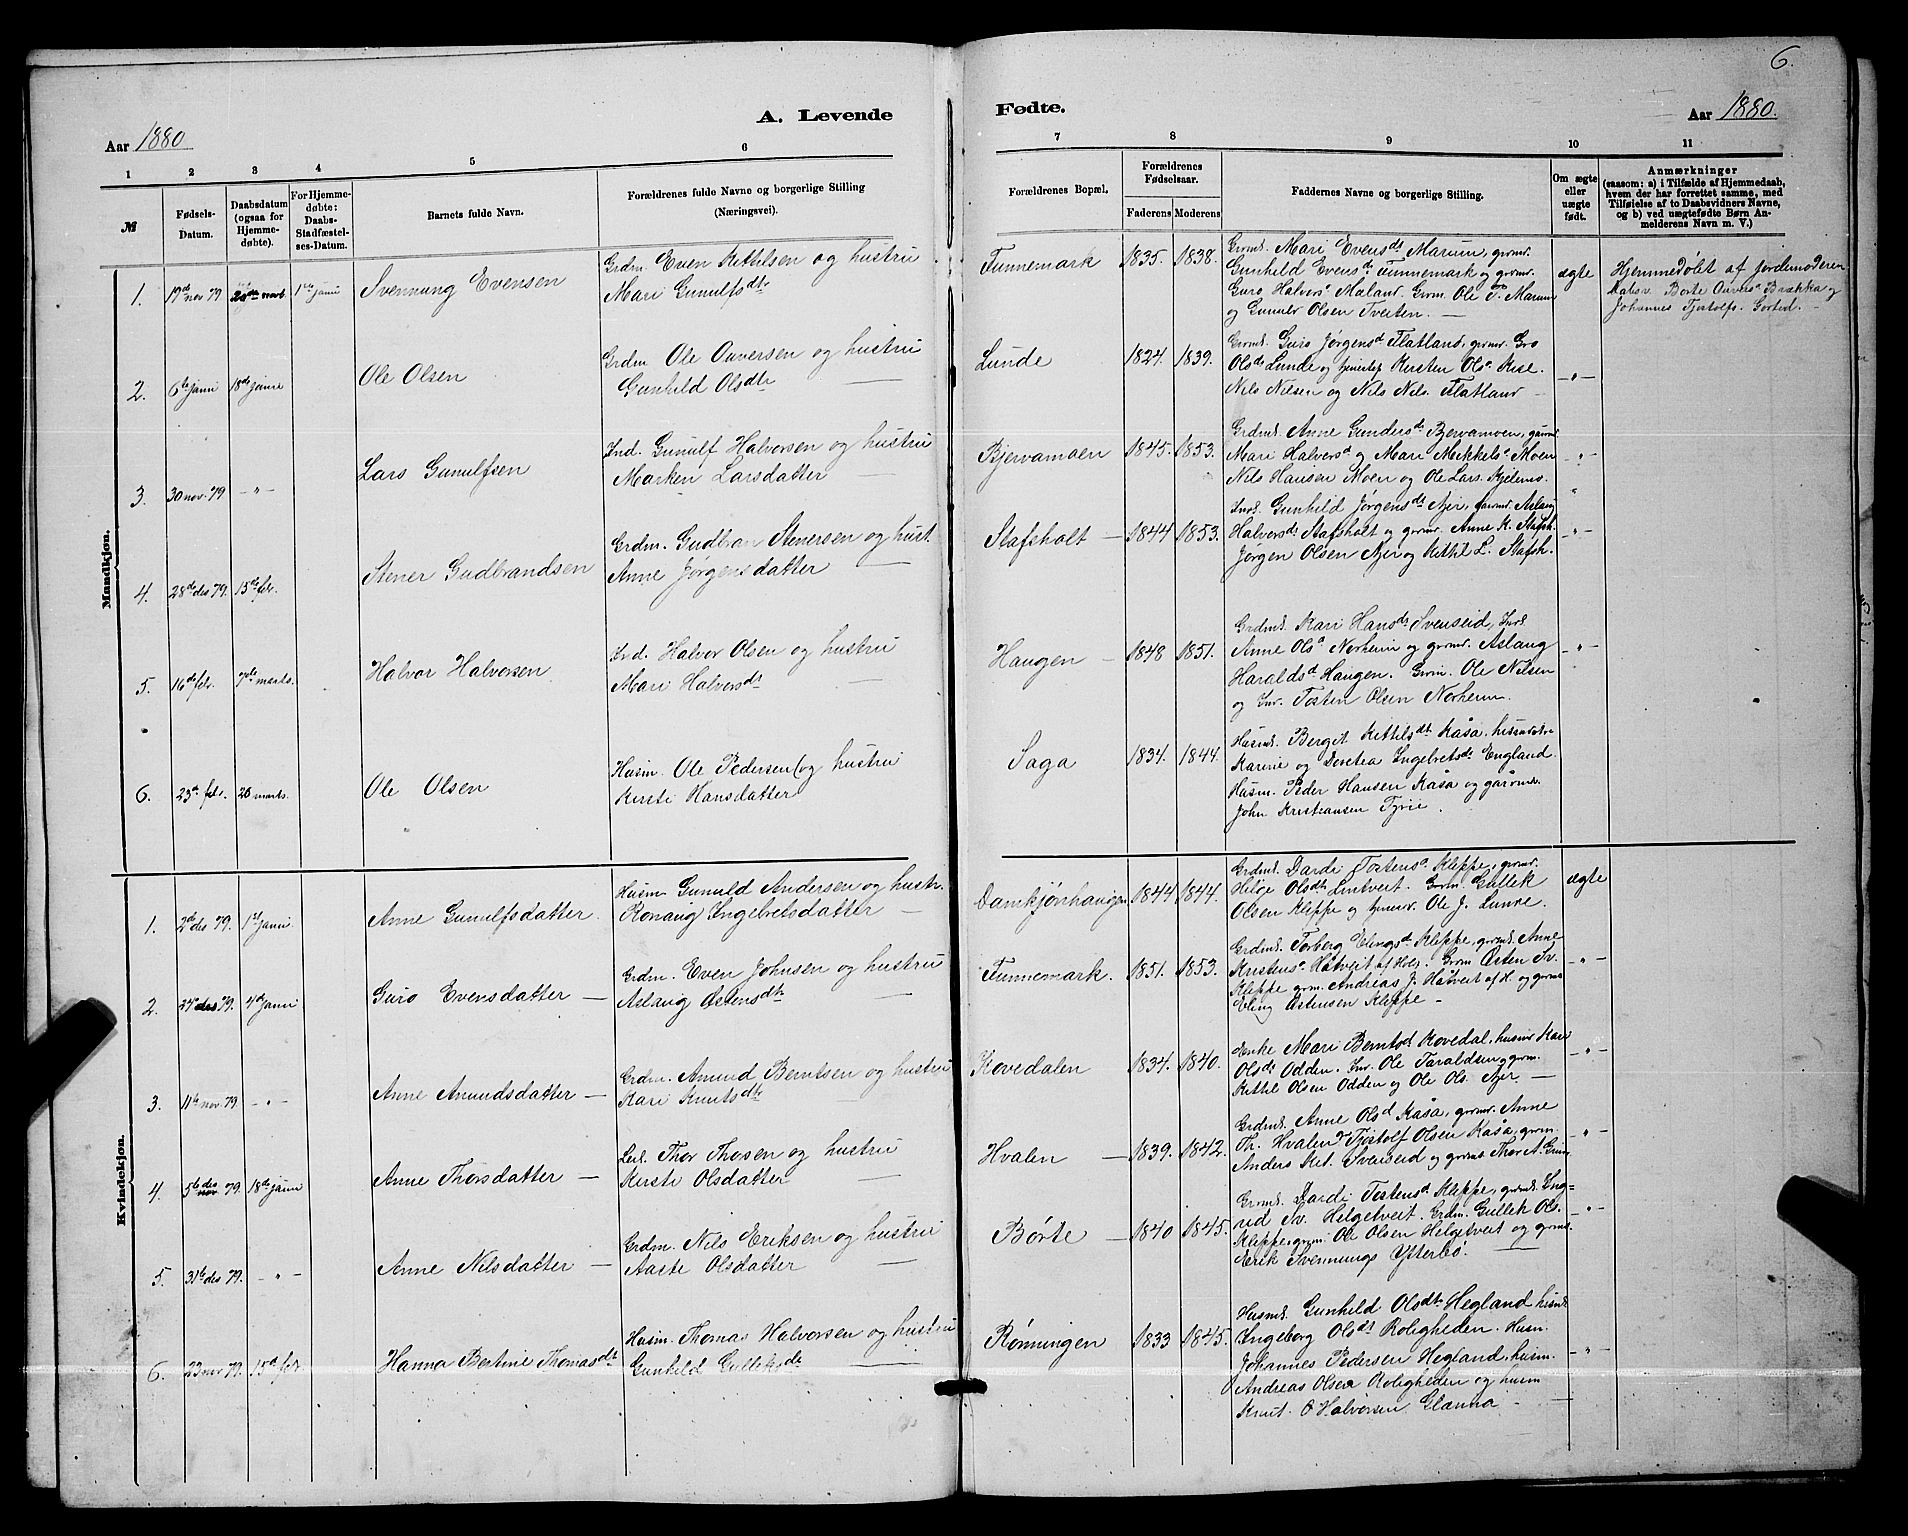 6.
A. Levende
Fødte.
Aar 1880
Aar 1880.
1 2 3 4 5 6 7 8 9 10 11
№
Fødsels-Datum.
Daabsdatum (ogsaa for Hjemmedøbte).
For Hjemmedøbte: Daabs-Stadfæstelses-Datum.
Barnets fulde Navn.
Forældrenes fulde Navne og borgerlige Stilling (Næringsvei).
Forældrenes Bopæl,
Forældrenes Fødselsaar.
Faderens Moderens
Faddernes Navne og borgerlige Stilling.
Om ægte eller uægte født.
Anmærkninger
(saasom: a) i Tilfælde af Hjemmedaab, hvem der har forrettet samme, med Tilføielse af to Daabsvidners Navne, og b) ved uægtefødte Børn Anmelderens Navn m. V.)
Mandkjøn.
1. 19de nov 79 1ste janu Svennung Evensen
Grdm. Even Kittilsen og hustru
Mari Gunulfsdtr
Tunnemark 1835. 1838.
Grmd. Mari Evensdr Marum, grmd.
Gunhild Evensd Tunnemark og grmd.
Guro Halvorsd Maland. Grm. Ole T. Marum
og Gunner Olsen Tveiten. —
ægte
Hjemmedøbt af jordemoderen
Børte Anversd Brækka og
Johannes Tjostolfs.
2. 6te janu 18de janu Ole Olsen
Grdm Ole Anversen og hustru
Gunhild Olsdtr —
Lunde 1824. 1839.
Grmd. Guro Jørgensd Flatland, grmd. Gro
Olsdr Lunde og Kersten Olsd
Nils Nilsen og Nils Nils. Flatland —
— " —
3. 30 nov. 79 — " — Lars Gunulfsen
Ind. Gunulf Halvorsen og hustru
Marken Larsdatter —
Bjervamoen 1845. 1853.
Grdmd. Anne Gundersdr Bjervamoen,
Mari Halvorsd og Mari Mikkelsd Moen
Nils Hansen Moen og Ole Lars. Kjelemo.
— " —
4. 28de des 79. 15de feb. Stener Gudbrandsen
Grdm. Gudbran Stenersen og hust.
Anne Jørgensdatter —
Stafsholt — 1844 1853.
Gunhild Jørgensdr Ajer, Aslaug
Halvorsdr Stafsholt og grmd. Anne K. Stafsh.
Jørgen Olsen Ajer og Kittil L. Stafsh.
— " —
5. 16de feb. 7de marts. Halvor Halvorsen
Ind. Halvor Olsen og hustru
Mari Halvorsdtr —
Haugen — 1848 1851.
Grdmd. Kari Hansdr Svenseid, Ind.
Anne Olsd Norheim og grmd. Aslaug
Haraldsd Haugen. Grm. Ole Nilsen
og Ind. Tosten Olsen Norheim.
— " —
6. 23de feb. 26 marts. Ole Olsen
Husm. Ole Pedersen og hustru
Kirsti Hansdatter
Saga 1834. 1844.
Husmd. Bergit Kittilsdr Kåså,
Karine og Dortea Ingebretsdr England.
Husm. Peder Hansen Kåså og
John Kristiansen Tyrie.
Kvindekjøn.
1. 2de des 79. 1ste janu Anne Gunulfsdatter.
Husm. Gunuld Andersen og hustr.
Ronaug Ingebretsdatter —
1844 1844.
Grdmd. Dardi Tostensd Kleppe, grmd.
Helje Olsdtr Lintveit. Grm. Gullek
Olsen Kleppe og Ole J. Lunde.
ægte
2. 24de des 79. 4de janu Guro Evensdatter —
Grdm. Even Johnsen og hustru
Aslaug Østensdtr —
Tunnemark. 1851. 1853.
Grdmd. Torberg Elingsd Kleppe, grmd. Anne
Kristensd Håtveit af Holz. Grm Østen Sv.
Kleppe grm. Andreas J. Håtveit af H. og grmd
Eling Østensen Kleppe —
— " —
3. 11te nov. 79. — " — Anne Amundsdatter —
Grdm. Amund Berntsen og hustru
Kari Knutsdtr
Kovedalen 1834. 1840.
Enke Mari Berntsd Kovedal, husmd Kari
Olsdr Odden. Ind. Ole Taraldsen, grm.
Kittil Olsen Odden og Ole Ols. Ajer —
— " —
4. 5te des 79. 18de janu Anne Thorsdatter —
Thor Thosen og hustru
Kirsti Olsdatter —
Hvalen — 1839. 1842.
Grdmd. Anne Olsd Kåså, grmd. Anne
Th. Hvalen, Tjostolf Olsen Kåså, grm.
Anders Kit. Svenseid og Thor A.
— " —
5. 31te des 79. — " — Anne Nilsdatter —
Grdm. Nils Eriksen og hustru
Aaste Olsdatter —
Børte — 1840 1845.
Grmd. Dardi Tostensd Kleppe, grmd. Ing=
rid Sv. Helgetveit. Grdm. Gullek Ols.
Kleppe, grm. Ole Olsen Helgetveit og grmd.
Erik Svennungs Ytterbø. —
— " —
6. 23 nov 79. 15de feb. Hanna Bertine Thomasdtr
Husm. Thomas Halvorsen og hustru
Gunhild Gulleksdr —
Rønningen 1833 1845.
Husmd. Gunhild Olsdtr Hegland husmd
Ingeborg Olsdr Roligheden. Husm.
Johannes Pedersen Hegland, husm.
Andreas Olsen Roligheden og husm
Knut O Halvorsen Glænna —
— " —